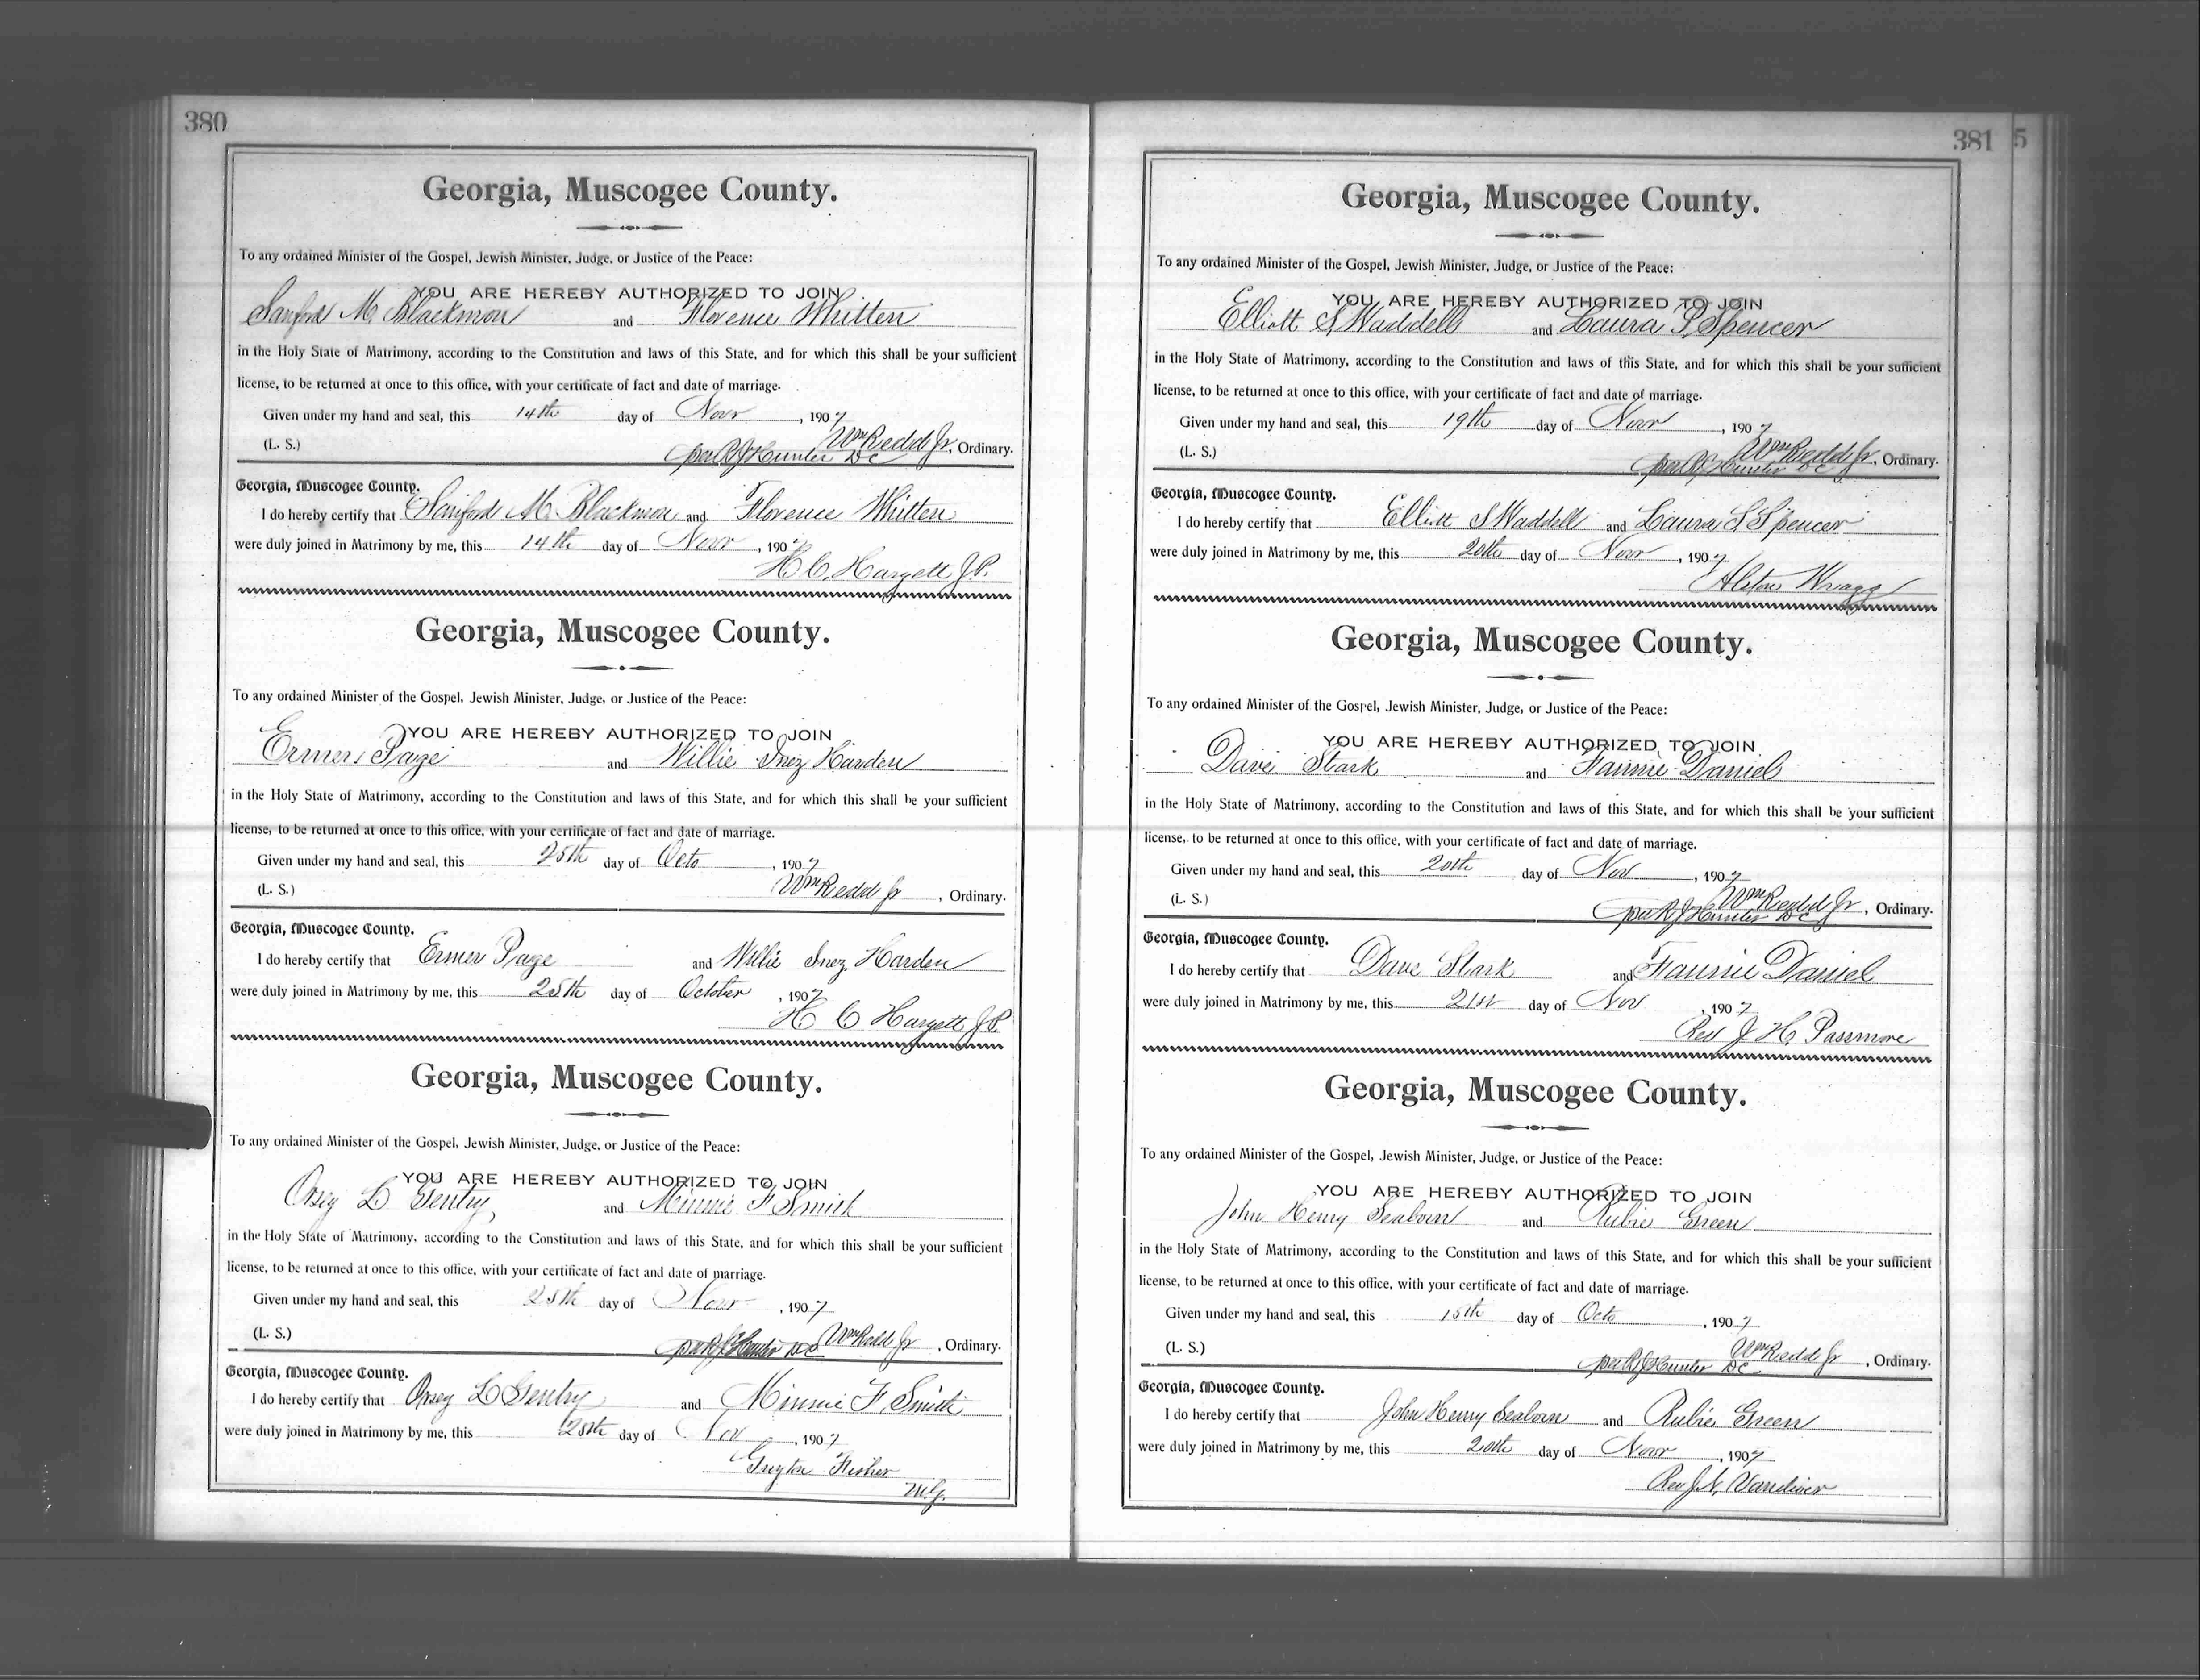 380
Georgia, Muscogee County.
To any ordained Minister of the Gospel, Jewish Minister, Judge, or Justice of the Peace:
YOU ARE HEREBY AUTHORIZED TO JOIN
Sanford M. Blackmon and Florence Whitten
in the Holy State of Matrimony, according to the Constitution and laws of this State, and for which this shall be your sufficient
license, to be returned at once to this office, with your certificate of fact and date of marriage.
Given under my hand and seal, this 14th day of Novr, 1907
(L. S.) Wm Redd Jr, Ordinary.
per R J Hunter DC
Georgia, Muscogee County.
I do hereby certify that Sanford M. Blackmon and Florence Whitten
were duly joined in Matrimony by me, this 14th day of Novr, 1907
H. C. Hargett J.P.
Georgia, Muscogee County.
To any ordained Minister of the Gospel, Jewish Minister, Judge, or Justice of the Peace:
YOU ARE HEREBY AUTHORIZED TO JOIN
Ermer Page and Willie Inez Harden
in the Holy State of Matrimony, according to the Constitution and laws of this State, and for which this shall be your sufficient
license, to be returned at once to this office, with your certificate of fact and date of marriage.
Given under my hand and seal, this 25th day of Octo, 1907
(L. S.) Wm Redd Jr, Ordinary.
Georgia, Muscogee County.
I do hereby certify that Ermer Page and Willie Inez Harden
were duly joined in Matrimony by me, this 25th day of October, 1907
H C Hargett J.P.
Georgia, Muscogee County.
To any ordained Minister of the Gospel, Jewish Minister, Judge, or Justice of the Peace:
YOU ARE HEREBY AUTHORIZED TO JOIN
L Gentry, and Minnie F Smith
in the Holy State of Matrimony, according to the Constitution and laws of this State, and for which this shall be your sufficient
license, to be returned at once to this office, with your certificate of fact and date of marriage.
Given under my hand and seal, this day of Novr, 1907
(L. S.) per R J Hunter DC Wm Redd Jr, Ordinary.
Georgia, Muscogee County.
I do hereby certify that L Gentry and Minnie F. Smith
were duly joined in Matrimony by me, this day of Nov, 1907
Fisher
M.G.
381 5
Georgia, Muscogee County.
To any ordained Minister of the Gospel, Jewish Minister, Judge, or Justice of the Peace:
YOU ARE HEREBY AUTHORIZED TO JOIN
Elliott S. Waddell and Laura S. Spencer
in the Holy State of Matrimony, according to the Constitution and laws of this State, and for which this shall be your sufficient
license, to be returned at once to this office, with your certificate of fact and date of marriage.
Given under my hand and seal, this 19th day of Novr, 1907
(L. S.) Wm Redd Jr, Ordinary.
per R J Hunter DC
Georgia, Muscogee County.
I do hereby certify that Elliott S Waddell and Laura S Spencer
were duly joined in Matrimony by me, this 20th day of Novr, 1907
Alston Wragg
Georgia, Muscogee County.
To any ordained Minister of the Gospel, Jewish Minister, Judge, or Justice of the Peace:
YOU ARE HEREBY AUTHORIZED TO JOIN
Dave Stark and Fannie Daniel
in the Holy State of Matrimony, according to the Constitution and laws of this State, and for which this shall be your sufficient
license, to be returned at once to this office, with your certificate of fact and date of marriage.
Given under my hand and seal, this 20th day of Nov, 1907
(L. S.) Wm Redd Jr, Ordinary.
per R J Hunter DC
Georgia, Muscogee County.
I do hereby certify that Dave Stark and Fannie Daniel
were duly joined in Matrimony by me, this 21st day of Nov, 1907
Rev J. H. Passmore
Georgia, Muscogee County.
To any ordained Minister of the Gospel, Jewish Minister, Judge, or Justice of the Peace:
YOU ARE HEREBY AUTHORIZED TO JOIN
John Henry Seaborn and Rubie Green
in the Holy State of Matrimony, according to the Constitution and laws of this State, and for which this shall be your sufficient
license, to be returned at once to this office, with your certificate of fact and date of marriage.
Given under my hand and seal, this 15th day of Octo, 1907
(L. S.) Wm Redd Jr, Ordinary.
per R J Hunter DC
Georgia, Muscogee County.
I do hereby certify that John Henry Seaborn and Rubie Green
were duly joined in Matrimony by me, this 20th day of Novr, 1907
Rev J. N. Vandiver